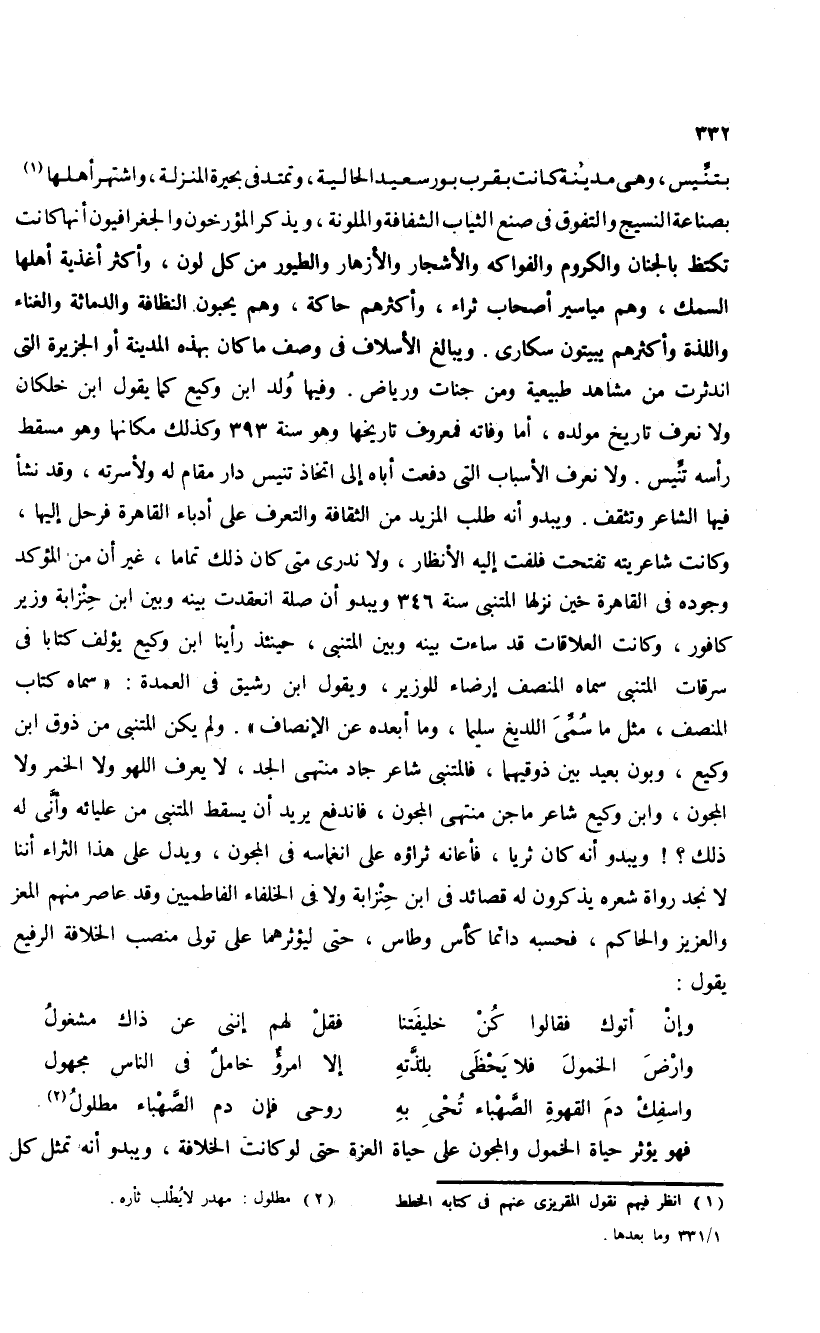 ٣٣٢
بتنِّيس ، وهى مدينة كانت بقرب بور سعيد الحالية ، وتمتد فى بحيرة المنزلة ، واشتهر أهلها (١)
بصناعة النسيج والتفوق فى صنع الثياب الشفافة والملونة ، ويذكر المؤرخون والجغرافيون أنها كانت
تكتظ بالجنان والكروم والفواكه والأشجار والأزهار والطيور من كل لون ، وأكثر أغذية أهلها
السمك ، وهم مياسير أصحاب ثراء ، وأكثرهم حاكة ، وهم يحبون النظافة والدماثة والغناء
واللذة وأكثرهم يبيتون سكارى . ويبالغ الأسلاف فى وصف ما كان بهذه المدينة أو الجزيرة التى
اندثرت من مشاهد طبيعية ومن جنات ورياض . وفيها وُلد ابن وكيع كما يقول ابن خلكان
ولا نعرف تاريخ مولده ، أما وفاته فمعروف تاريخها وهو سنة ٣٩٣ وكذلك مكانها وهو مسقط
رأسه تنِّيس . ولا نعرف الأسباب التى دفعت أباه إلى اتخاذ تنيس دار مقام له ولأسرته ، وقد نشأ
فيها الشاعر وتثقف . ويبدو أنه طلب المزيد من الثقافة والتعرف على أدباء القاهرة فرحل إليها ،
وكانت شاعريته تفتحت فلفت إليه الأنظار ، ولا ندرى متى كان ذلك تماما ، غير أن من المؤكد
وجوده فى القاهرة حين نزلها المتنبى سنة ٣٤٦ ويبدو أن صلة انعقدت بينه وبين ابن حِنْزابة وزير
كافور ، وكانت العلاقات قد ساءت بينه وبين المتنبى ، حينئذ رأينا ابن وكيع يؤلف كتابا فى
سرقات المتنبى سماه المنصف إرضاء للوزير ، ويقول ابن رشيق فى العمدة : « سماه كتاب
المنصف ، مثل ما سُمِّىَ اللديغ سليما ، وما أبعده عن الإنصاف » . ولم يكن المتنبى من ذوق ابن
وكيع ، وبون بعيد بين ذوقيهما ، فالمتنبى شاعر جاد منتهى الجد ، لا يعرف اللهو ولا الخمر ولا
المجون ، وابن وكيع شاعر ماجن منتهى المجون ، فاندفع يريد أن يسقط المتنبى من عليائه وأنَّى له
ذلك ؟ ! ويبدو أنه كان ثريا ، فأعانه ثراؤه على انغماسه فى المجون ، ويدل على هذا الثراء أننا
لا نجد رواة شعره يذكرون له قصائد فى ابن حِنْزابة ولا فى الخلفاء الفاطميين وقد عاصر منهم المعز
والعزيز والحاكم ، فحسبه دائما كأس وطاس ، حتى ليؤثرهما على تولى منصب الخلافة الرفيع
يقول :
وإنْ أتوك فقالوا كُنْ خليفَتنا فقلْ لهم إننى عن ذاك مشغولُ
وارْضَ الخمولَ فلا يَحْظَى بلذَّتهِ إلا امرؤٌ خاملٌ فى الناس مجهول
واسفِكْ دمَ القهوةِ الصَّهْباء تُحْىِ بهِ روحى فإن دم الصَّهْباء مطلولُ (٢) .
فهو يؤثر حياة الخمول والمجون على حياة العزة حتى لو كانت الخلافة ، ويبدو أنه تمثل كل
(١) انظر فيهم نقول المقريزى عنهم فى كتابه الخطط
٣٣١/١ وما بعدها .
(٢) مطلول : مهدر لا يُطْلب ثأره .